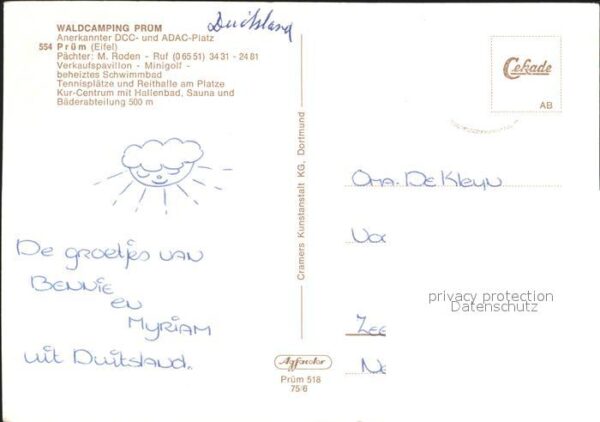 Duitsland
WALDCAMPING PRÜM
Anerkannter DCC- und ADAC-Platz
554 Prüm (Eifel)
Pächter: M. Roden - Ruf (0 65 51) 34 31 - 24 81
Verkaufspavillon - Minigolf -
beheiztes Schwimmbad
Tennisplätze und Reithalle am Platze
Kur-Centrum mit Hallenbad, Sauna und
Bäderabteilung 500 m
De groetjes van
Bennie
en
Myriam
uit Duitsland.
Cramers Kunstanstalt KG, Dortmund
Agfacolor
Prüm 518
75/6
Cekade
AB
Oma. De Kleyn
Voo
Zee
Ne
privacy protection
Datenschutz